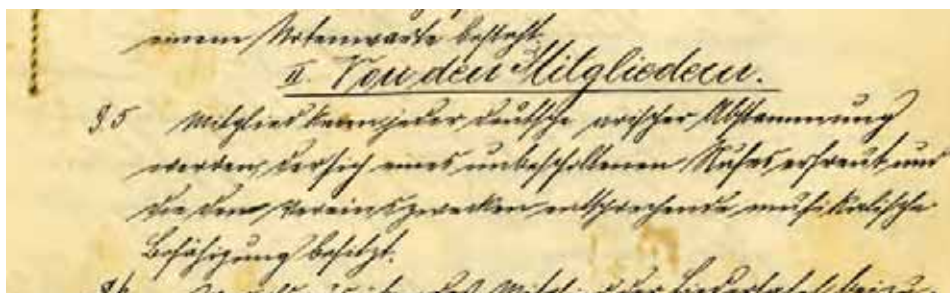 einem Notenwarte besteht.
II. Von den Mitgliedern.
§ 5 Mitglied kann jeder Deutsche arischer Abstammung
werden, der sich eines unbescholtenen Rufes erfreut und
die den Vereinszwecken entsprechende musikalische
Befähigung besitzt.
§ 6 das Mitglied der Liedertafel